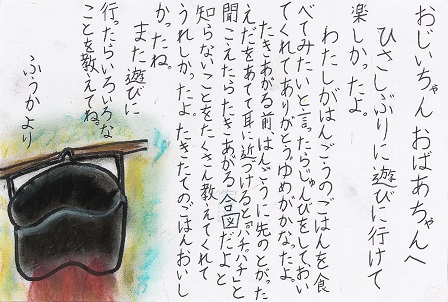 おじいちゃんおばあちゃんへ
ひさしぶりに遊びに行けて
楽しかったよ。
わたしがはんごうのごはんを食
べてみたいと言ったらじゅんびをしておい
てくれてありがとう。ゆめがかなったよ。
たきあがる前はんごうに先のとがった
えだをあてて耳に近づけると「パチパチ」と
聞こえたらたきあがる合図だよと
知らないことをたくさん教えてくれて
うれしかったよ。たきたてのごはんおいし
かったね。
また遊びに
行ったらいろいろな
ことを教えてね。
ふうかより